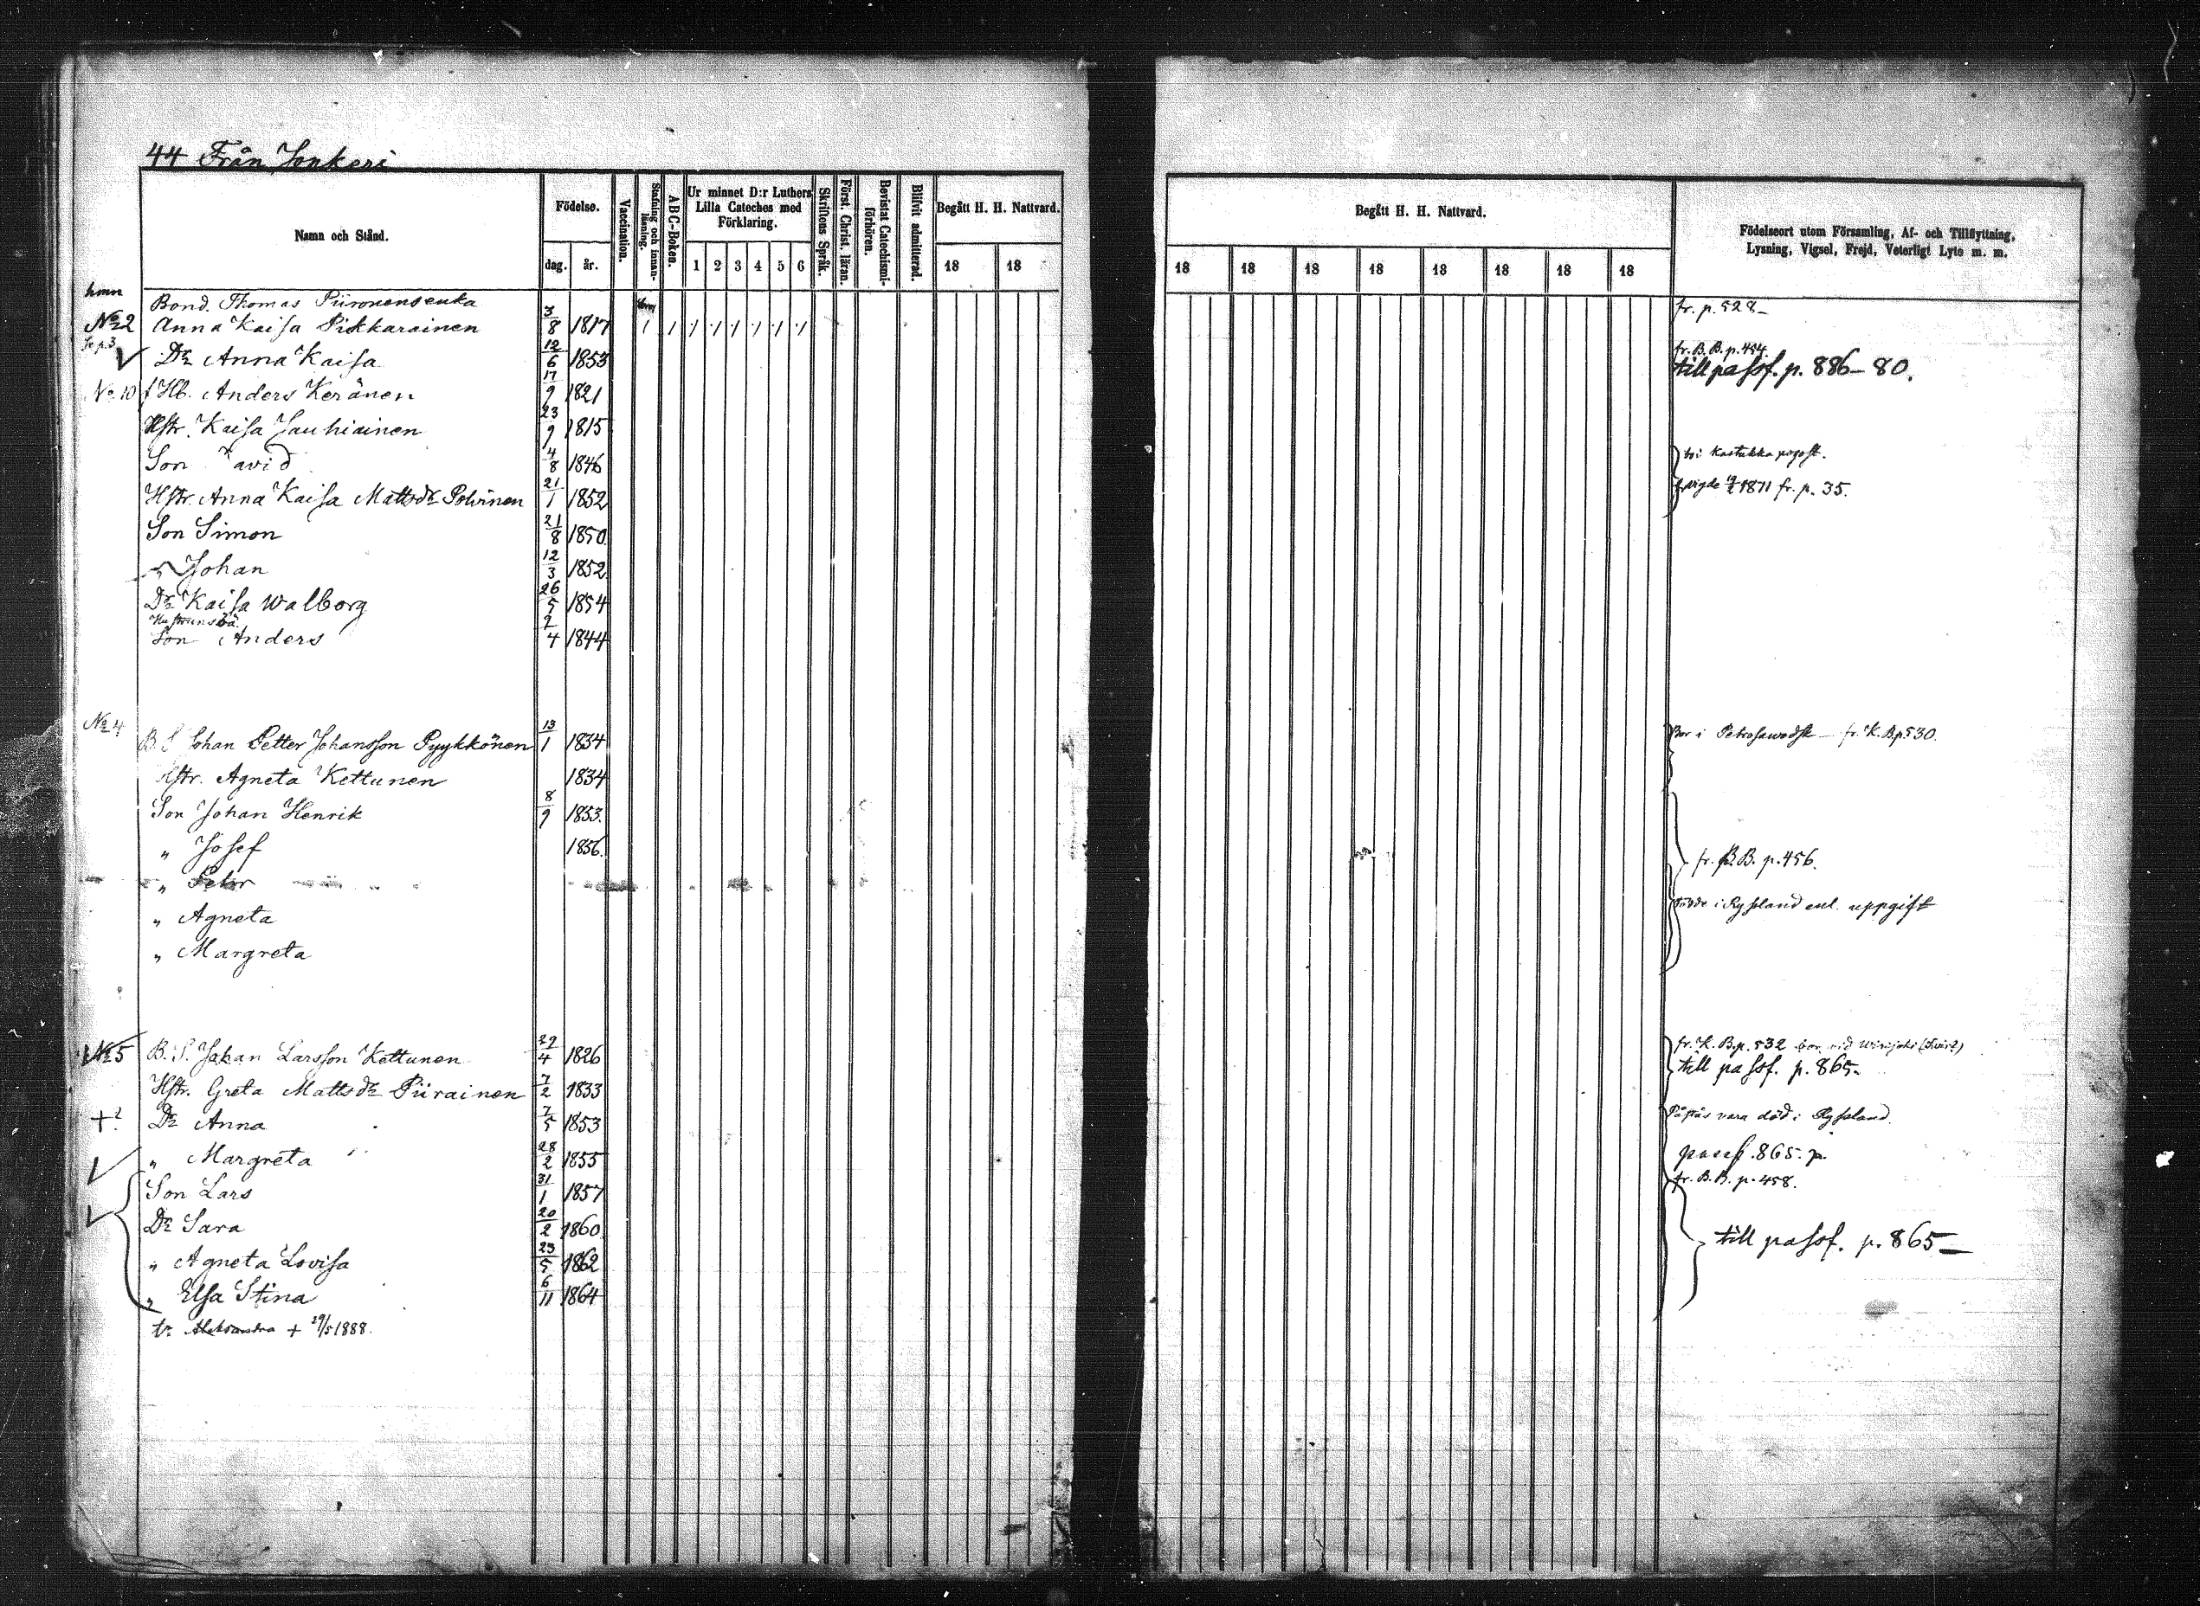 44 Från Jonkeri
Namn och Stånd.
Födelse.
dag. år.
Vaccination.
Stafning och innan-läsning.
ABC-Boken.
Ur minnet D:r Luthers Lilla Cateches med Förklaring.
1 2 3 4 5 6
Skriftens Språk.
Först. Christ. läran.
Bevistat Catechismi-förhören.
Blifvit admitterad.
Begått H. H. Nattvard.
18 18
Begått H. H. Nattvard.
18 18 18 18 18 18 18 18
Födelseort utom Församling, Af- och Tillflyttning,
Lysning, Vigsel, Frejd, Veterligt Lyte m. m.
Bond. Thomas Piironens enka fr. p. 528
No 2 Anna Kaisa Pikkarainen 3/8 1817
Dr Anna Kaisa 12/6 1853 fr. B. B. p. 454.
till passf. p. 886-80.
No 10 Hb. Anders Keränen 17/9 1821
Hstr. Kaisa Jauhiainen 23/9 1815
Son David 4/8 1846
Hstr. Anna Kaisa Mattsdr Polvinen 21/1 1852 vigde 1871 fr. p. 35.
Son Simon 21/8 1850
" Johan 12/3 1852
Dr Kaisa Walborg 26/5 1854
Son Anders 2/4 1844
No 4
B. S. Johan Petter Johansson Pyykkönen 13/1 1834 Bor i Petrosawodsk - fr. K. B. p. 530.
Hstr. Agneta Kettunen 1834
Son Johan Henrik 8/9 1853.
" Josef 1856. fr. B. B. p. 456.
" Petter
" Agneta döde i Ryssland enl. uppgift
" Margreta
No 5 B. S. Johan Larsson Kettunen 29/4 1826 fr. K. B. p. 532
till passf. p. 865.
Hstr. Greta Mattsdr Piirainen 7/2 1833
+? Dr Anna 7/5 1853 Påstås vara död i Ryssland.
" Margreta 28/2 1855 passf. 865. p.
Son Lars 31/1 1857 fr. B. B. p. 458.
Dr Sara 20/2 1860
" Agneta Lovisa 23/5 1862 till passf. p. 865
" Elsa Stina 6/11 1864
Aleksandra + 29/5 1888.